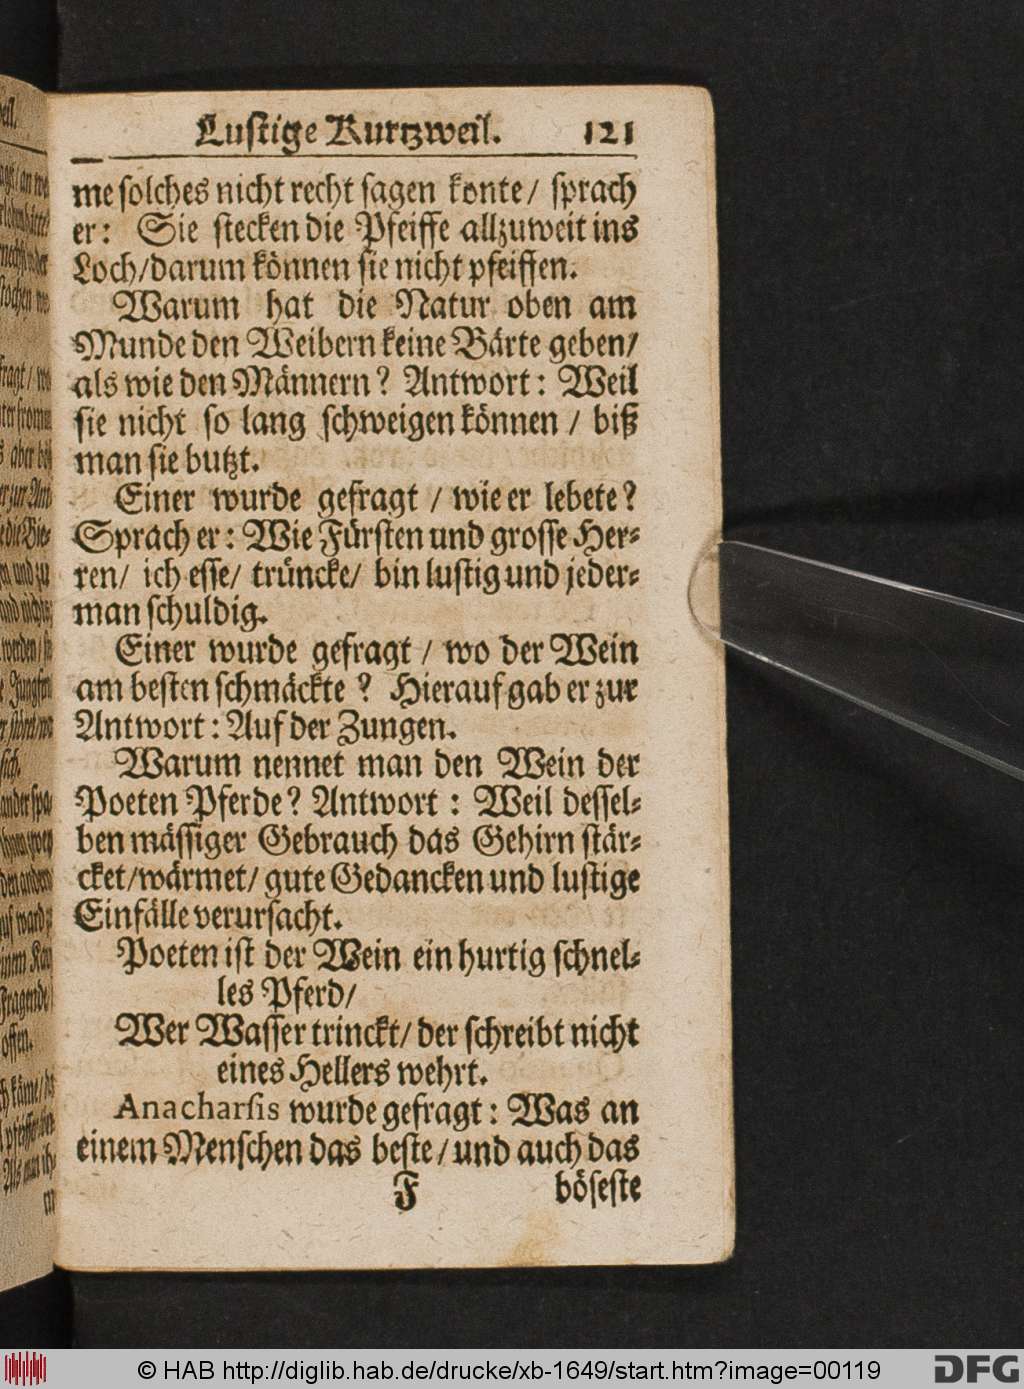 Lustige Kurtzweil. 121
me solches nicht recht sagen konte / sprach
er: Sie stecken die Pfeiffe allzuweit ins
Loch / darum können sie nicht pfeiffen.
Warum hat die Natur oben am
Munde den Weibern keine Bärte geben /
als wie den Männern? Antwort: Weil
sie nicht so lang schweigen können / biß
man sie butzt.
Einer wurde gefragt / wie er lebete?
Sprach er: Wie Fürsten und grosse Her-
ren / ich esse / trüncke / bin lustig und jeder-
man schuldig.
Einer wurde gefragt / wo der Wein
am besten schmäckte? Hierauf gab er zur
Antwort: Auf der Zungen.
Warum nennet man den Wein der
Poeten Pferde? Antwort: Weil dessel-
ben mässiger Gebrauch das Gehirn stär-
cket / wärmet / gute Gedancken und lustige
Einfälle verursacht.
Poeten ist der Wein ein hurtig schnel-
les Pferd /
Wer Wasser trinckt / der schreibt nicht
eines Hellers wehrt.
Anacharsis wurde gefragt: Was an
einem Menschen das beste / und auch das
F böseste
© HAB http://diglib.hab.de/drucke/xb-1649/start.htm?image=00119
DFG